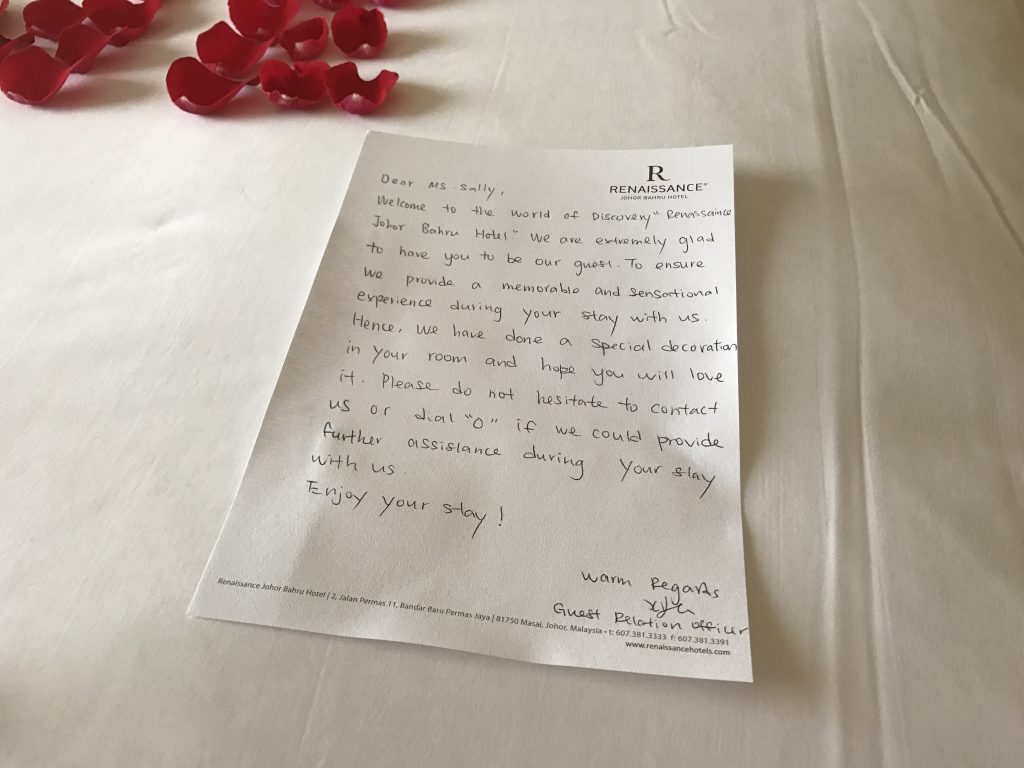 R
RENAISSANCE®
JOHOR BAHRU HOTEL
Dear Ms. Sally,
Welcome to the world of Discovery "Renaissance
Johor Bahru Hotel" We are extremely glad
to have you to be our guest. To ensure
we provide a memorable and sensational
experience during your stay with us.
Hence, we have done a special decoration
in your room and hope you will love
it. Please do not hesitate to contact
us or dial "0" if we could provide
further assistance during your stay
with us.
Enjoy your stay!
Warm Regards
Guest Relation Officer
Renaissance Johor Bahru Hotel | 2, Jalan Permas 11, Bandar Baru Permas Jaya | 81750 Masai, Johor, Malaysia • t: 607.381.3333 f: 607.381.3391
www.renaissancehotels.com